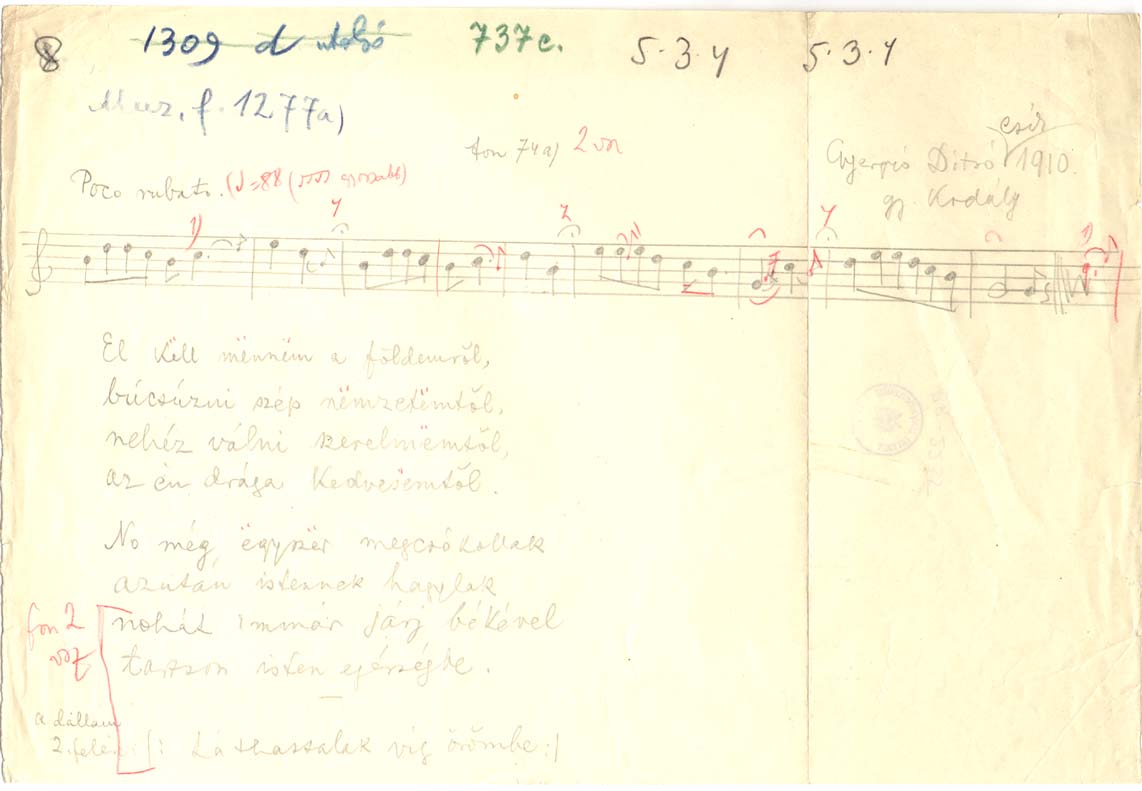 8 1309 d utolsó 737c. 5·3·4 5·3·1
Muz. f. 1277a)
fon 74a) 2 vsz
csík
Gyergyó Ditró 1910.
gy. Kodály
Poco rubato. (♩=88 (
1) 7 7 7 1)
El këll mënnëm a földemről,
búcsúzni szép nëmzetëmtől,
nehéz válni szerelmëmtől,
az én drága kedvesëmtől.
No még ëgyszër megcsókollak
azután istennek hagylak
nohát immár járj békével
tartson isten egészségbe.
fon 2 vsz
a dallam
2. felére |: Láthassalak víg örömbe :|